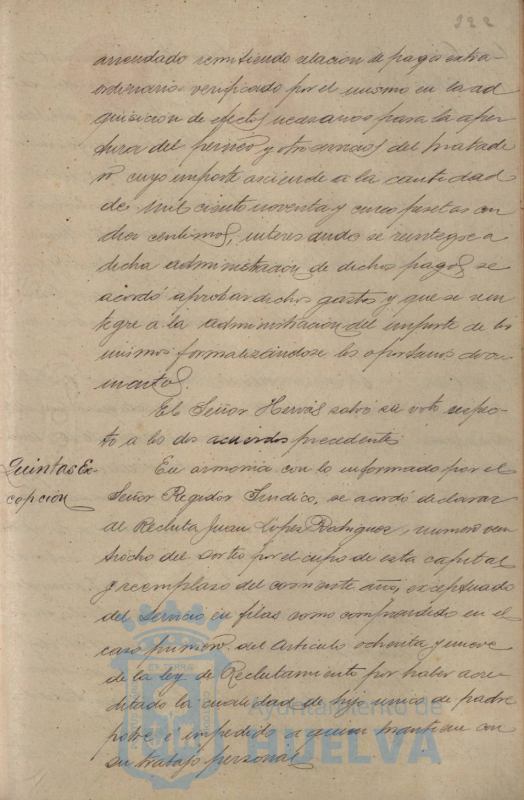 122
arrendado remitiendo relacion de pagos extra-
ordinarios verificado por el mismo en la ad
quisicion de efectos necesarios para la aper
tura del perneo y otro servicios del matade
ro cuyo importe asciende a la cantidad
de mil ciento noventa y cinco pesetas con
diez centimos, interesando se reintegre a
dicha administracion de dichos pagos, se
acordó aprobar dichos gastos y que se rein
tegre a la administracion del importe de los
mismos formalizandose los oportunos docu
mentos.
El Señor Hervás salvó su voto respec-
to a los dos acuerdos precedentes.
Quintas Ex-
cepción
En armonia con lo informado por el
Señor Regidor Sindico, se acordó declarar
al Recluta Juan Lopez Rodriguez, numero vein
tiocho del sorteo por el cupo de esta capital
y reemplazo del corriente año, exceptuado
del servicio en filas como comprendido en el
caso primero del Articulo ochenta y nueve
de la ley de Reclutamiento por haber acre
ditado la cualidad de hijo unico de padre
pobre é impedido a quien mantiene con
su trabajo personal
Ayuntamiento de
HUELVA